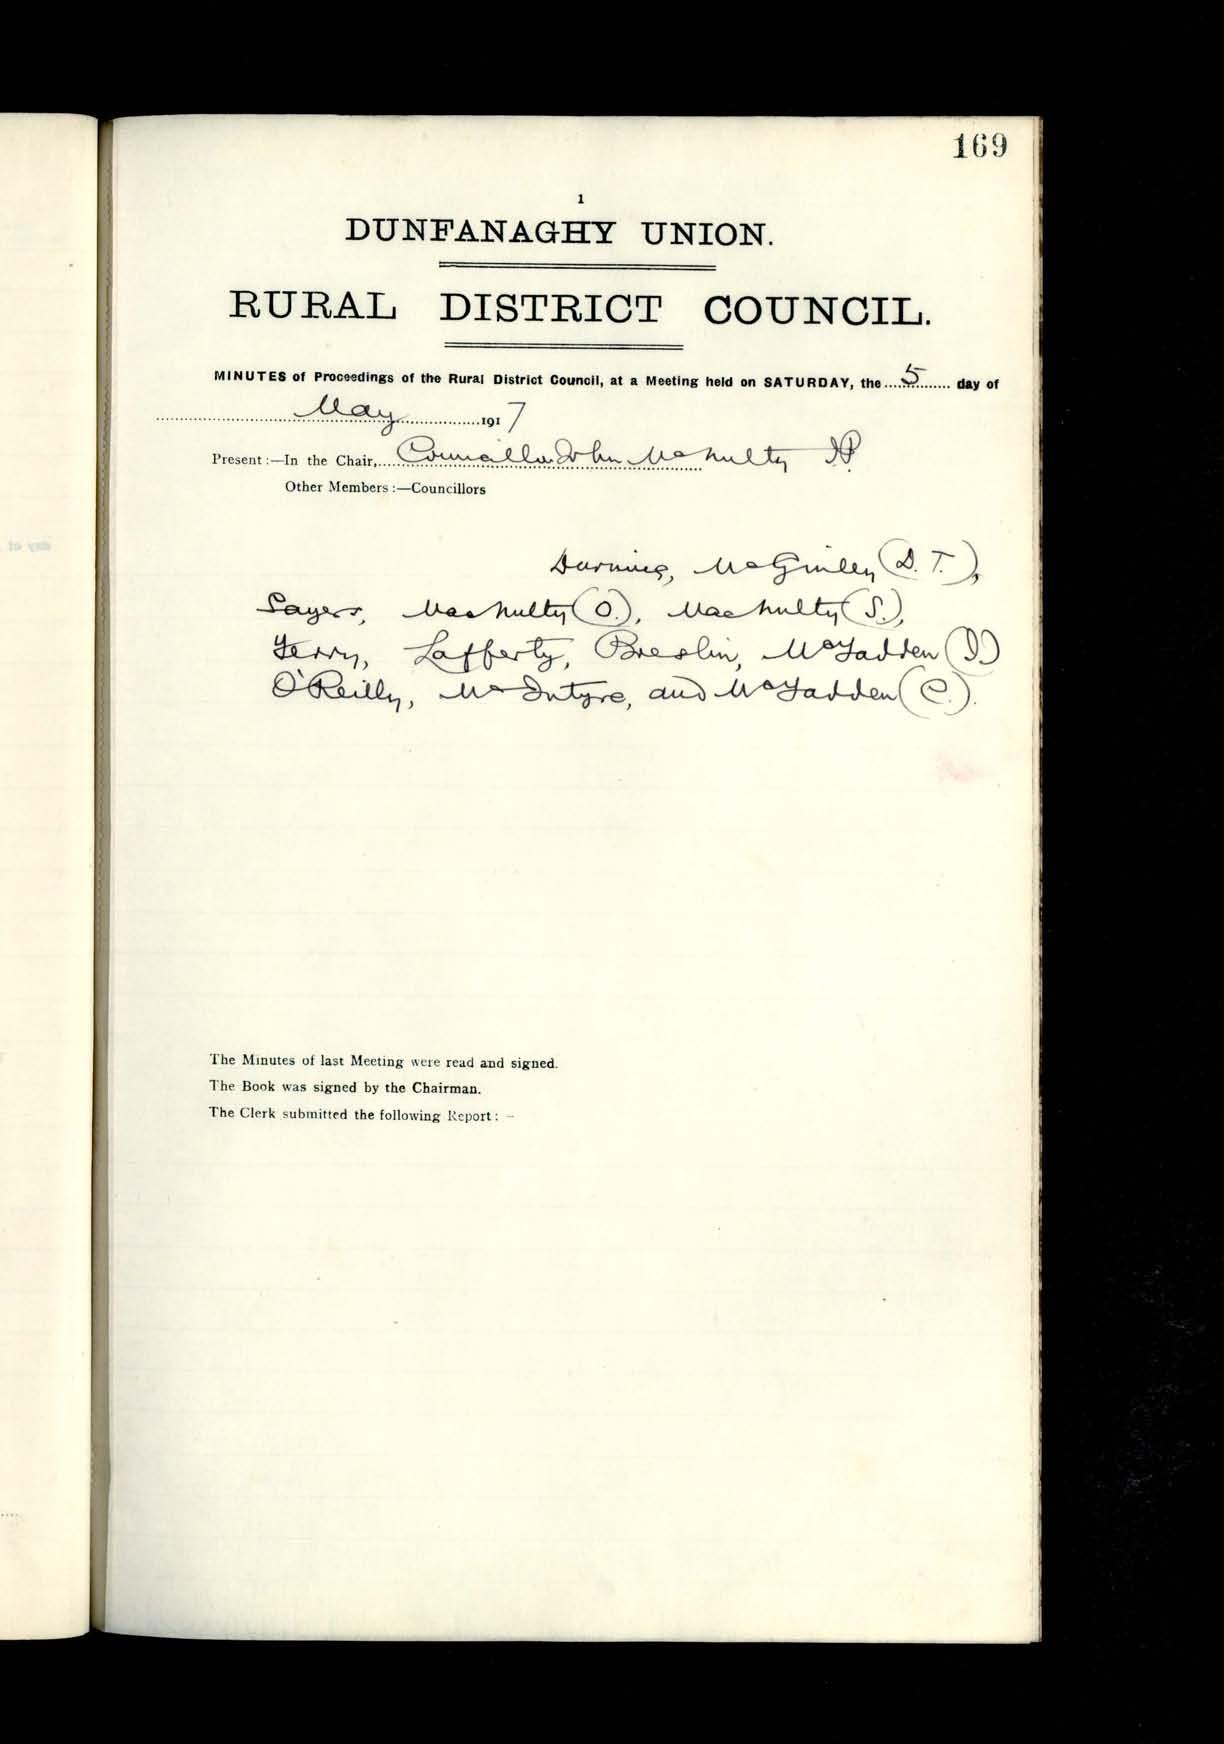 169
1
DUNFANAGHY UNION.
RURAL DISTRICT COUNCIL.
MINUTES of Proceedings of the Rural District Council, at a Meeting held on SATURDAY, the 5 day of
May 1917
Present :—In the Chair, Councillor John McNulty JP
Other Members :—Councillors
McGinley (D. T.),
Sayers, MacNulty (O.), MacNulty (S.),
Ferry, Lafferty, Breslin, McFadden (J.)
O'Reilly, McIntyre, and McFadden (C.).
The Minutes of last Meeting were read and signed.
The Book was signed by the Chairman.
The Clerk submitted the following Report : –